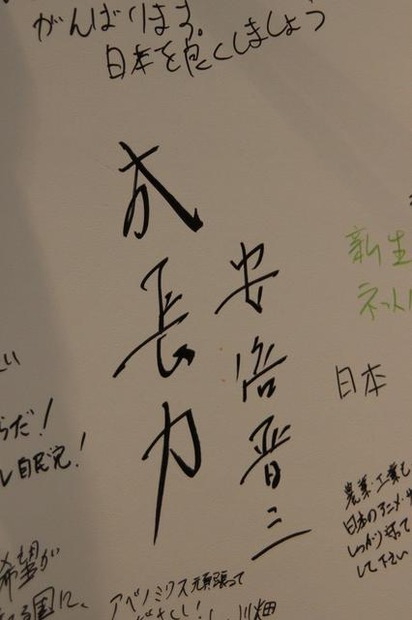 がんばります。
日本を良くしましょう
成長力
安倍晋三
新生
ネット
日本
だ!
自民党!
希望が
国に、
アベノミクス頑張って
ださい!
川畑
農業・工業も
日本のアニメ・
しっかり守って
して下さい